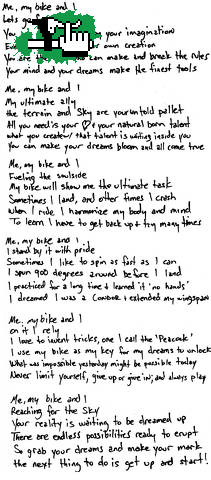 Me, my bike and I
Lets go
You your imagination
own creation
You are can make and break the rules
Your mind and your dreams make the finest tools
Me, my bike and I
My ultimate ally
the terrain and sky are your untold pallet
All you need is your ♡ & your natural born talent
what you create / that talent is waiting inside you
You can make your dreams bloom and all come true
Me, my bike and I
Fueling the soulside
My bike will show me the ultimate task
Sometimes I land, and other times I crash
When I ride I harmonize my body and mind
To learn I have to get back up & try many times
Me, my bike and I,
I stand by it with pride
Sometimes I like to spin as fast as I can
I spun 900 degrees around before I land
I practiced for a long time & learned it 'no hands'
I dreamed I was a Condor & extended my wingspan
Me, my bike and I
on it I rely
I love to invent tricks, one I call the 'Peacock'
I use my bike as my key for my dreams to unlock
What was impossible yesterday might be possible today
Never limit yourself, give up or give in, and always play
Me, my bike and I
Reaching for the Sky
Your reality is waiting to be dreamed up
There are endless possibilities ready to erupt
So grab your dreams and make your mark
the next thing to do is get up and start!